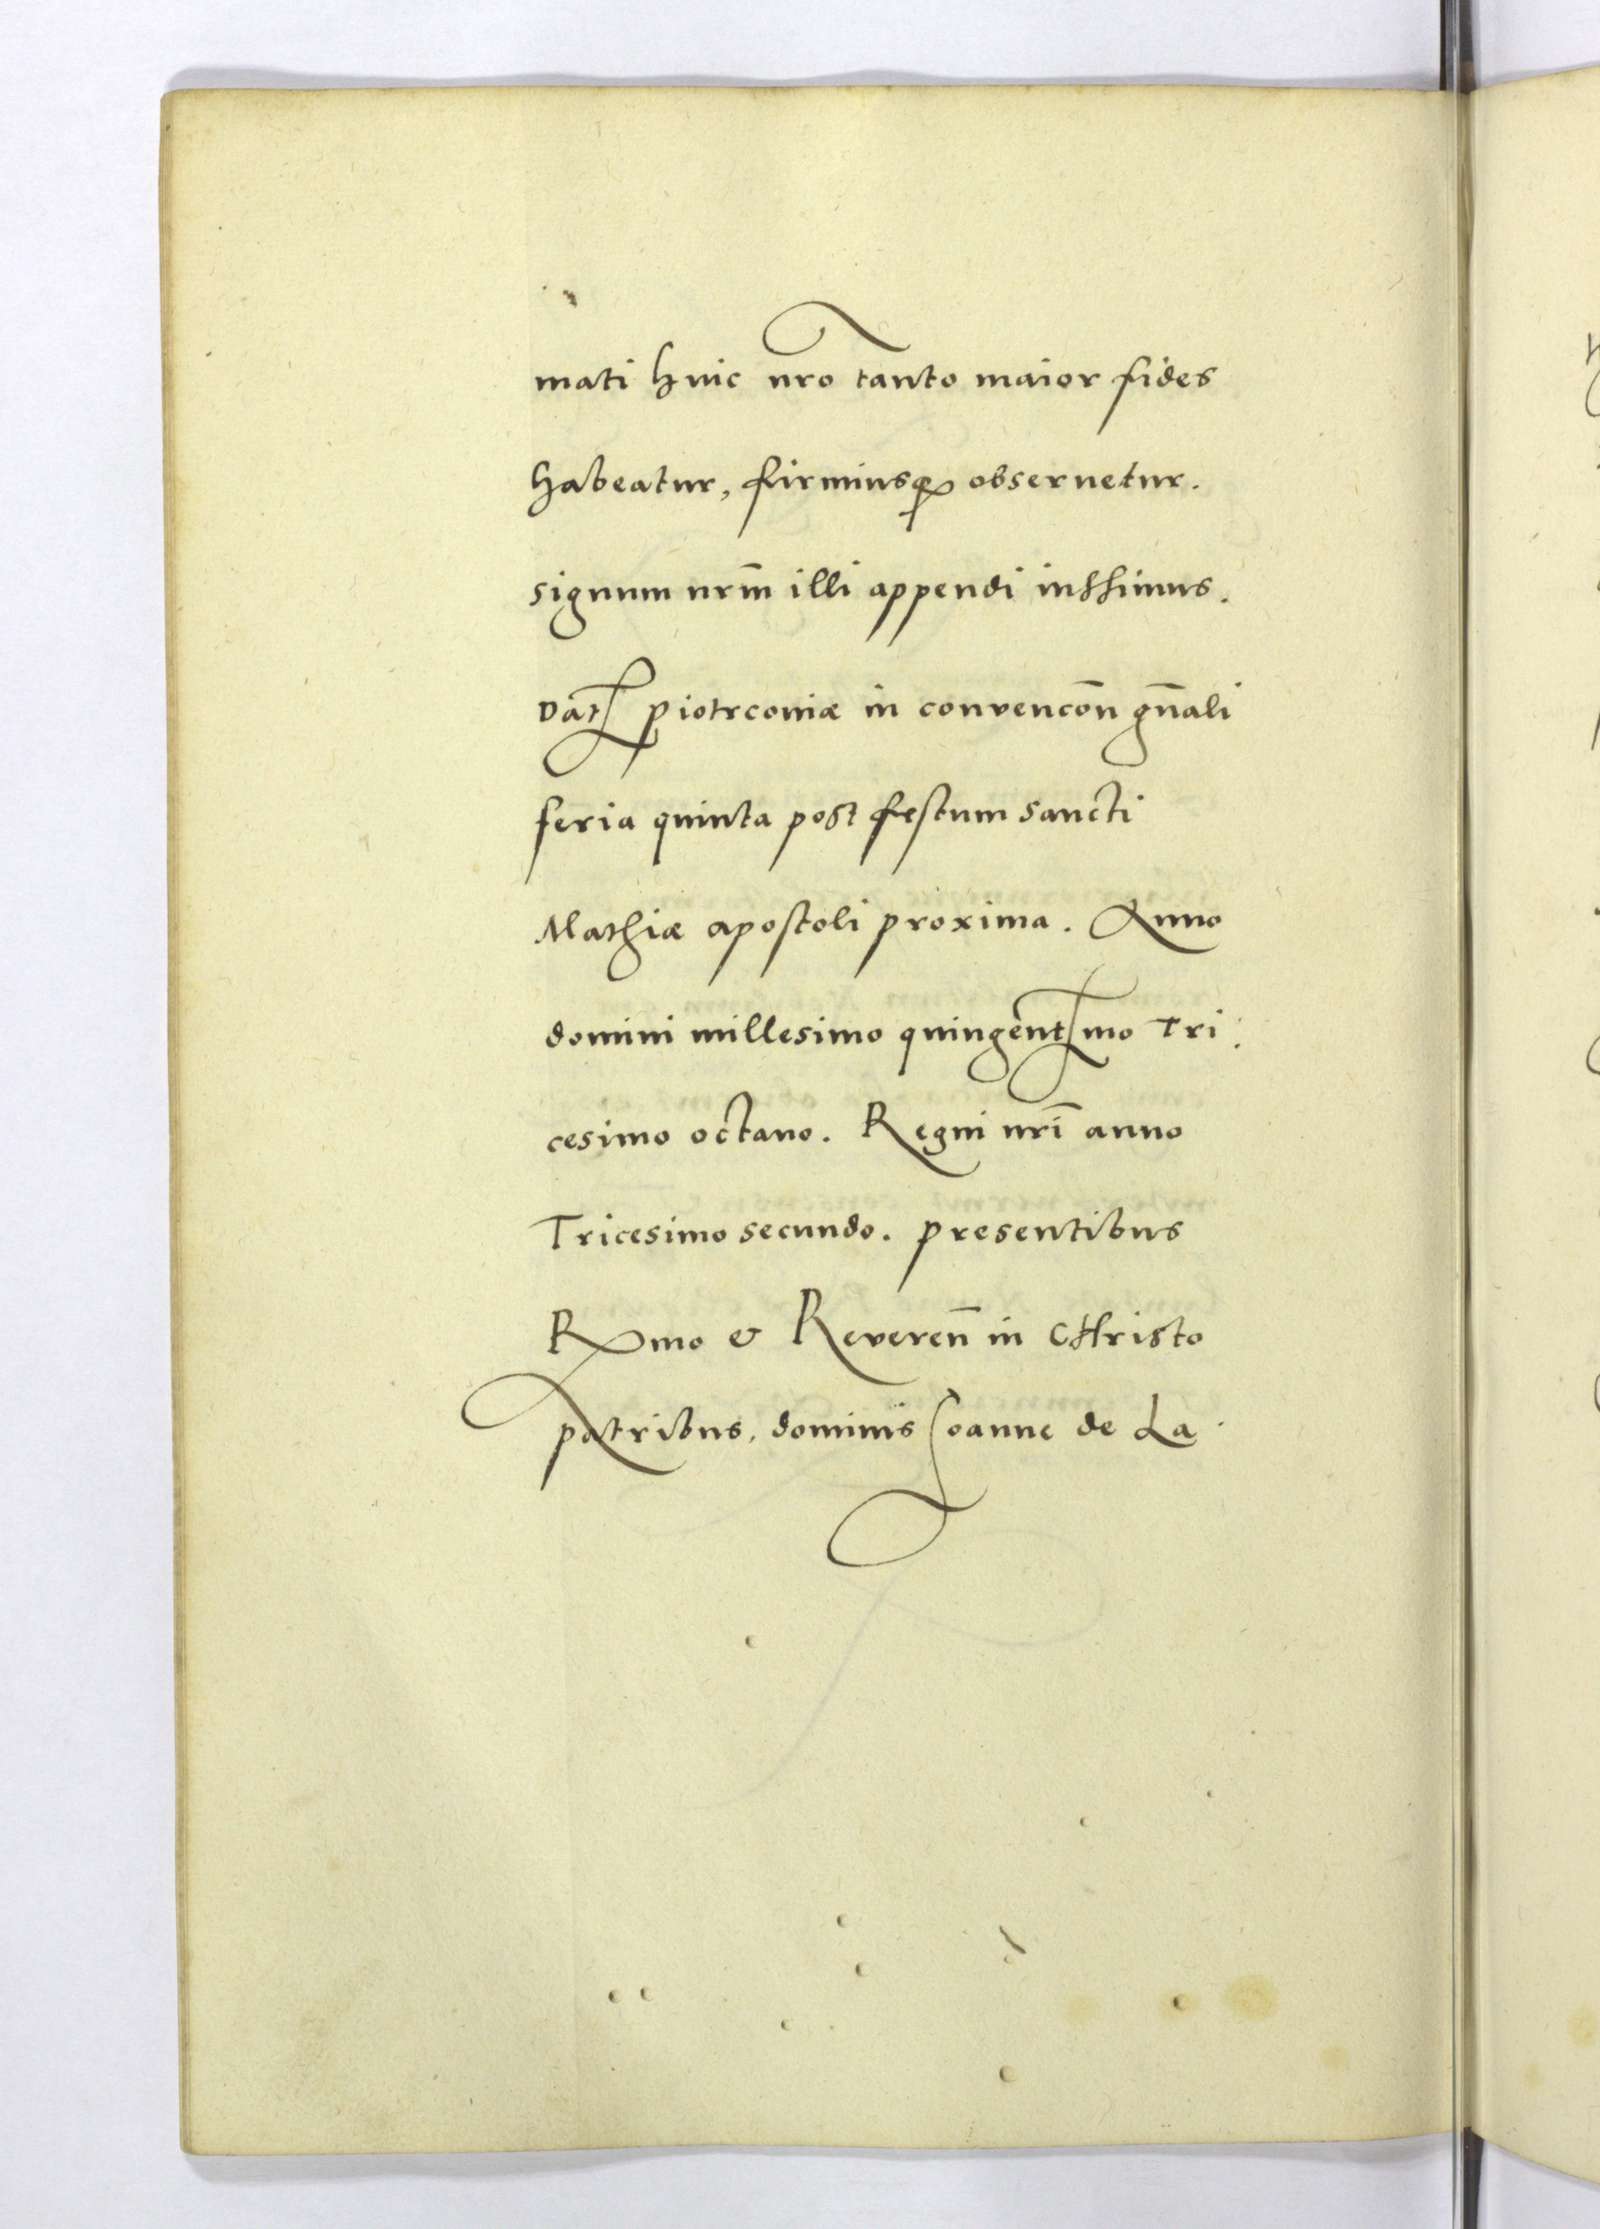 mati huic nr̄o tanto maior fides
habeatur, firmiusq̃ observetur.
signum nrm̄ illi appendi iussimus.
Dat Piotrconiæ in convencōn gn̄ali
feria quinta post festum sancti
Mathiæ apostoli proxima. Anno
domini millesimo quingentmo Tri:
cesimo octavo. Regni nrī anno
Tricesimo secundo. Presentibus
Rmo & Reveren̄ in CHristo
patribus, dominis Joanne de La